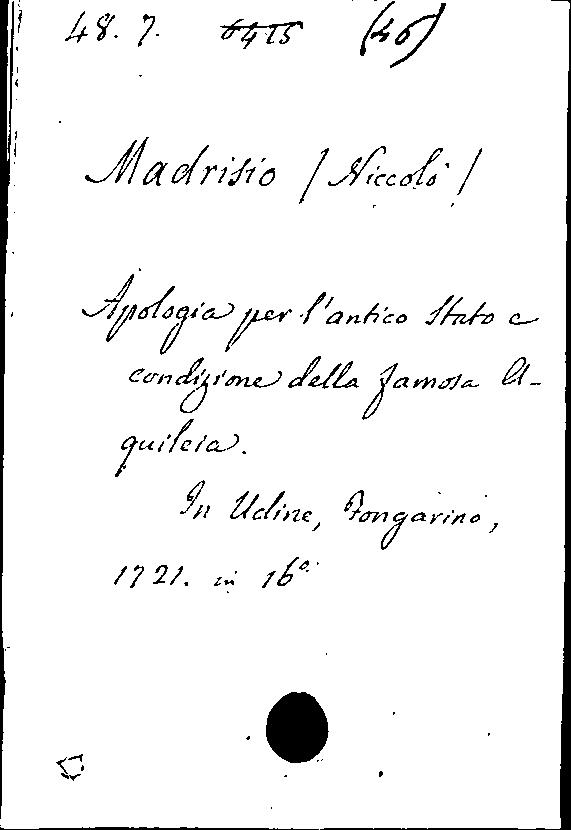 48. 7. 6415 (46)
Madrisio / Niccolò /
Apologia per l'antico Stato e
condizione della famosa A-
quileia.
In Udine, Fongarino,
1721. in 16°